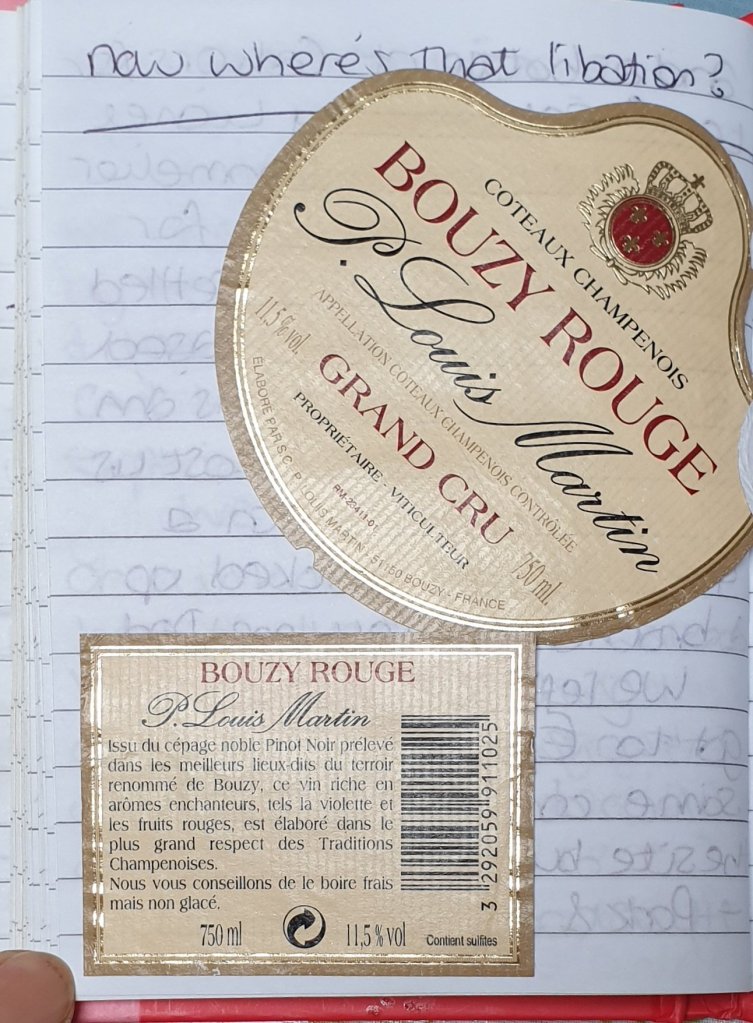 now where's that libation?
COTEAUX CHAMPENOIS
BOUZY ROUGE
P. Louis Martin
APPELLATION COTEAUX CHAMPENOIS CONTRÔLÉE
11,5 % vol.
GRAND CRU
750 ml.
PROPRIÉTAIRE - VITICULTEUR
RM-23411-01
ÉLABORÉ PAR S.C. P. LOUIS MARTIN - 51150 BOUZY - FRANCE
BOUZY ROUGE
P. Louis Martin
Issu du cépage noble Pinot Noir prélevé
dans les meilleurs lieux-dits du terroir
renommé de Bouzy, ce vin riche en
arômes enchanteurs, tels la violette et
les fruits rouges, est élaboré dans le
plus grand respect des Traditions
Champenoises.
Nous vous conseillons de le boire frais
mais non glacé.
750 ml 11,5 % vol Contient sulfites
3 292059 911025